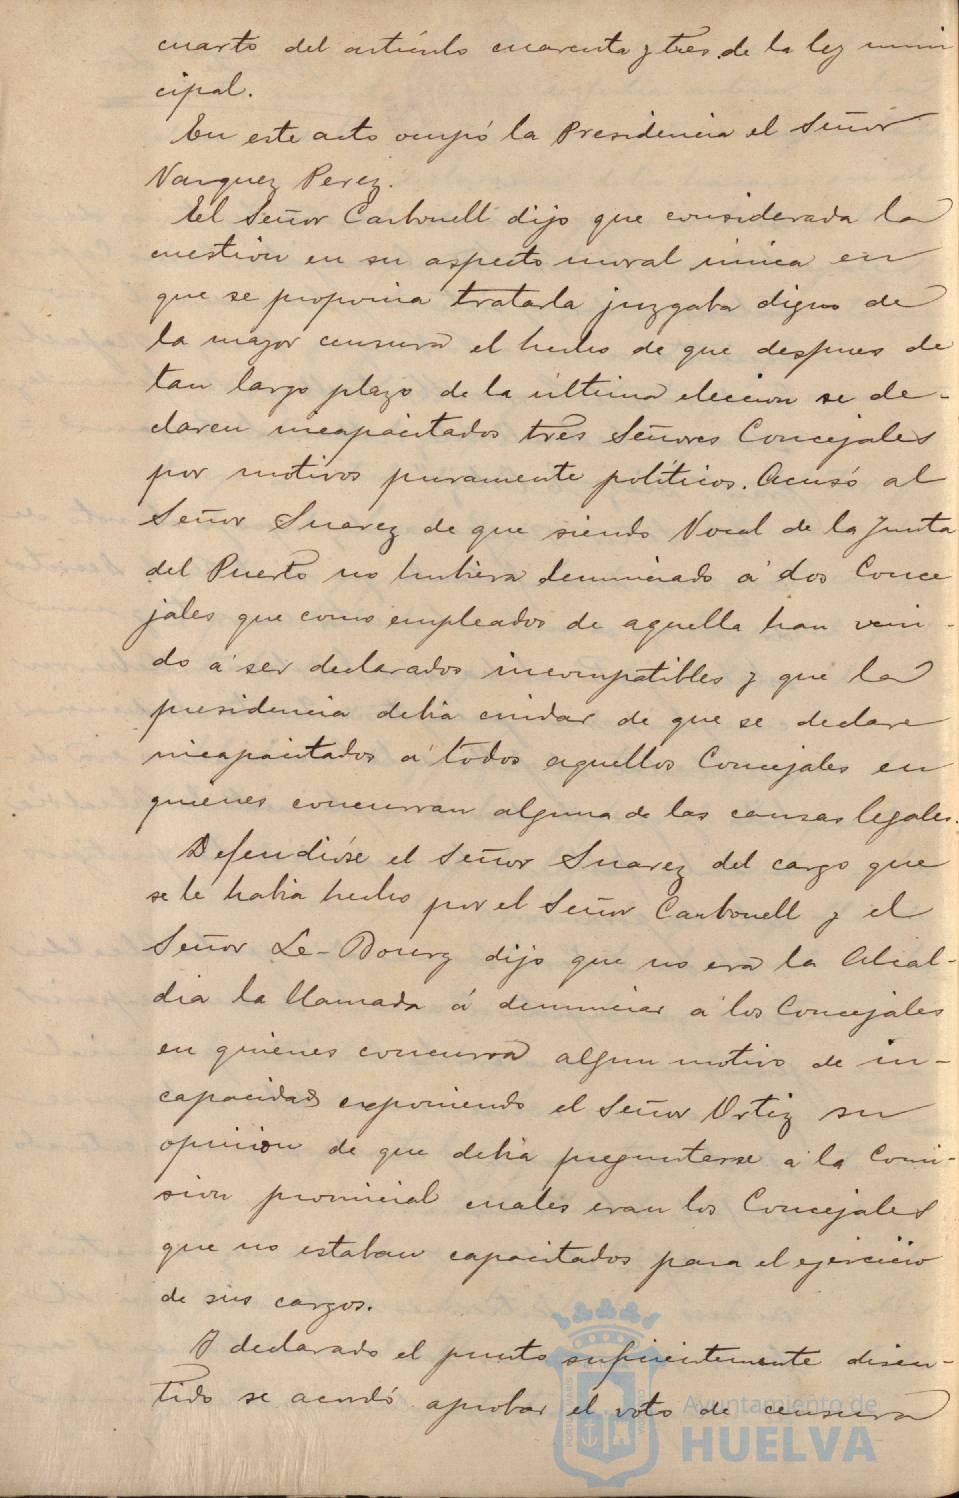 cuarto del artículo cuarenta y tres de la ley muni
cipal.
En este acto ocupó la Presidencia el Señor
Vazquez Perez.
El Señor Carbonell dijo que considerada la
cuestion en su aspecto moral única en
que se proponia tratarla juzgaba digno de
la mayor censura el hecho de que despues de
tan largo plazo de la última eleccion se de-
claren incapacitados tres Señores Concejales
por motivos puramente políticos. Acusó al
Señor Suarez de que siendo Vocal de la Junta
del Puerto no hubiera denunciado á dos Conce
jales que como empleados de aquella han veni-
do á ser declarados incompatibles y que la
presidencia debia cuidar de que se declare
incapacitados á todos aquellos Concejales en
quienes concurran alguna de las causas legales.
Defendióse el Señor Suarez del cargo que
se le habia hecho por el Señor Carbonell y el
Señor Le-Bourg dijo que no era la Alcal-
dia la llamada á denunciar á los Concejales
en quienes concurra algun motivo de in-
capacidad exponiendo el Señor Ortiz su
opinion de que debia preguntarse á la Comi-
sion provincial cuales eran los Concejales
que no estaban capacitados para el ejercicio
de sus cargos.
Y declarado el punto suficientemente discu-
tido se acordó aprobar el voto de censura
Ayuntamiento de
HUELVA